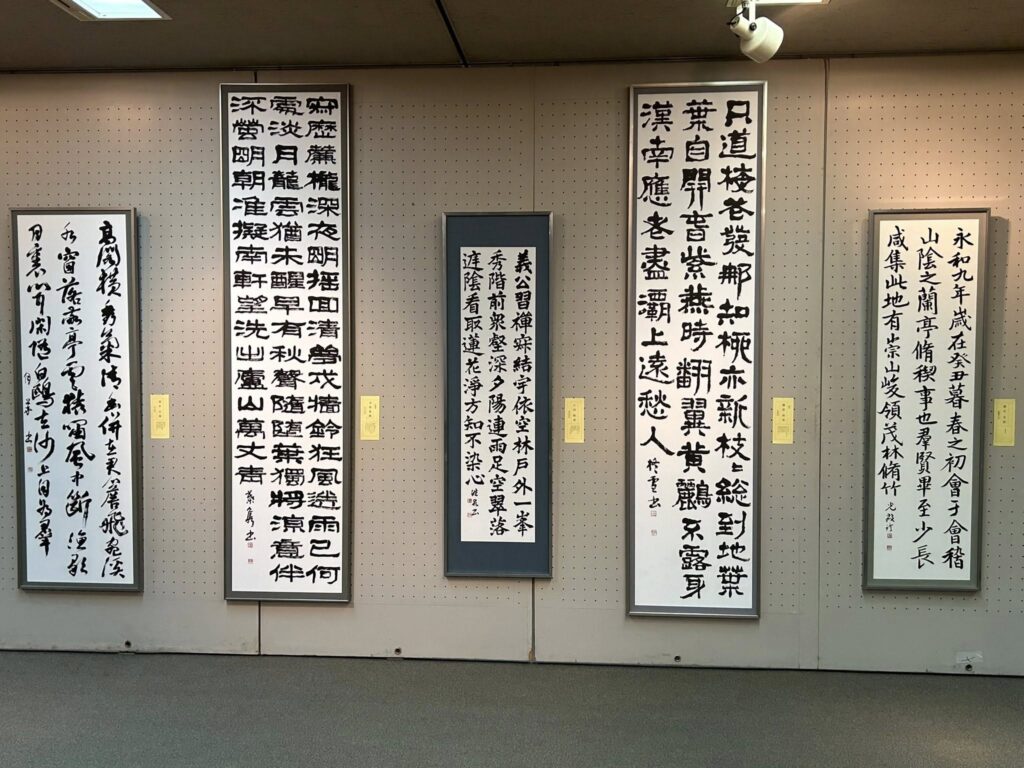 永和九年歳在癸丑暮春之初會于會稽
山陰之蘭亭脩稧事也羣賢畢至少長
咸集此地有崇山峻領茂林脩竹
只道梅花發那知柳亦新枝〻総到地葉
葉自開春紫燕時翻翼黄鸝不露身
漢南應老盡灞上遠愁人
義公習禪寂結宇依空林戸外一峯
秀階前衆壑深夕陽連雨足空翠落
庭陰看取蓮花淨方知不染心
寂歴簾櫳深夜明睡回清夢戍牆鈴狂風送雨已何
處淡月籠雲猶未醒早有秋聲隨墮葉獨將涼意伴
流螢明朝准擬南軒望洗出廬山萬丈青
高閣横秀氣清幽併在君簷飛宛溪
水窗落敬亭雲猿嘯風中斷漁歌
月裏聞閑隨白鷗去沙上自為羣